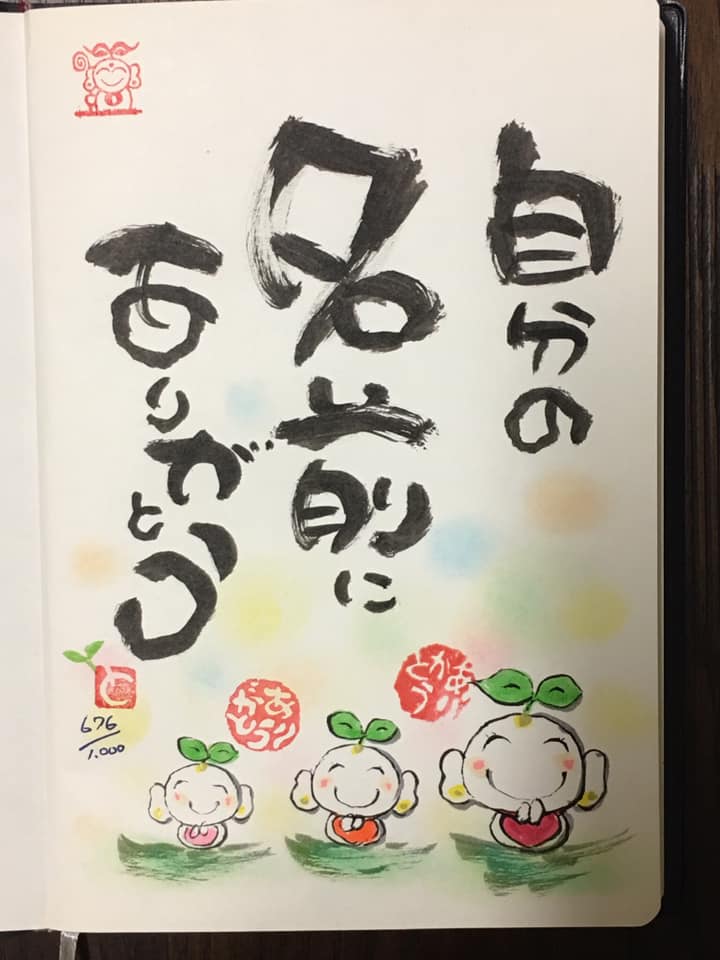 自分の
名前に
ありがとう
ありがとう
ありがとう
と
676
1.000